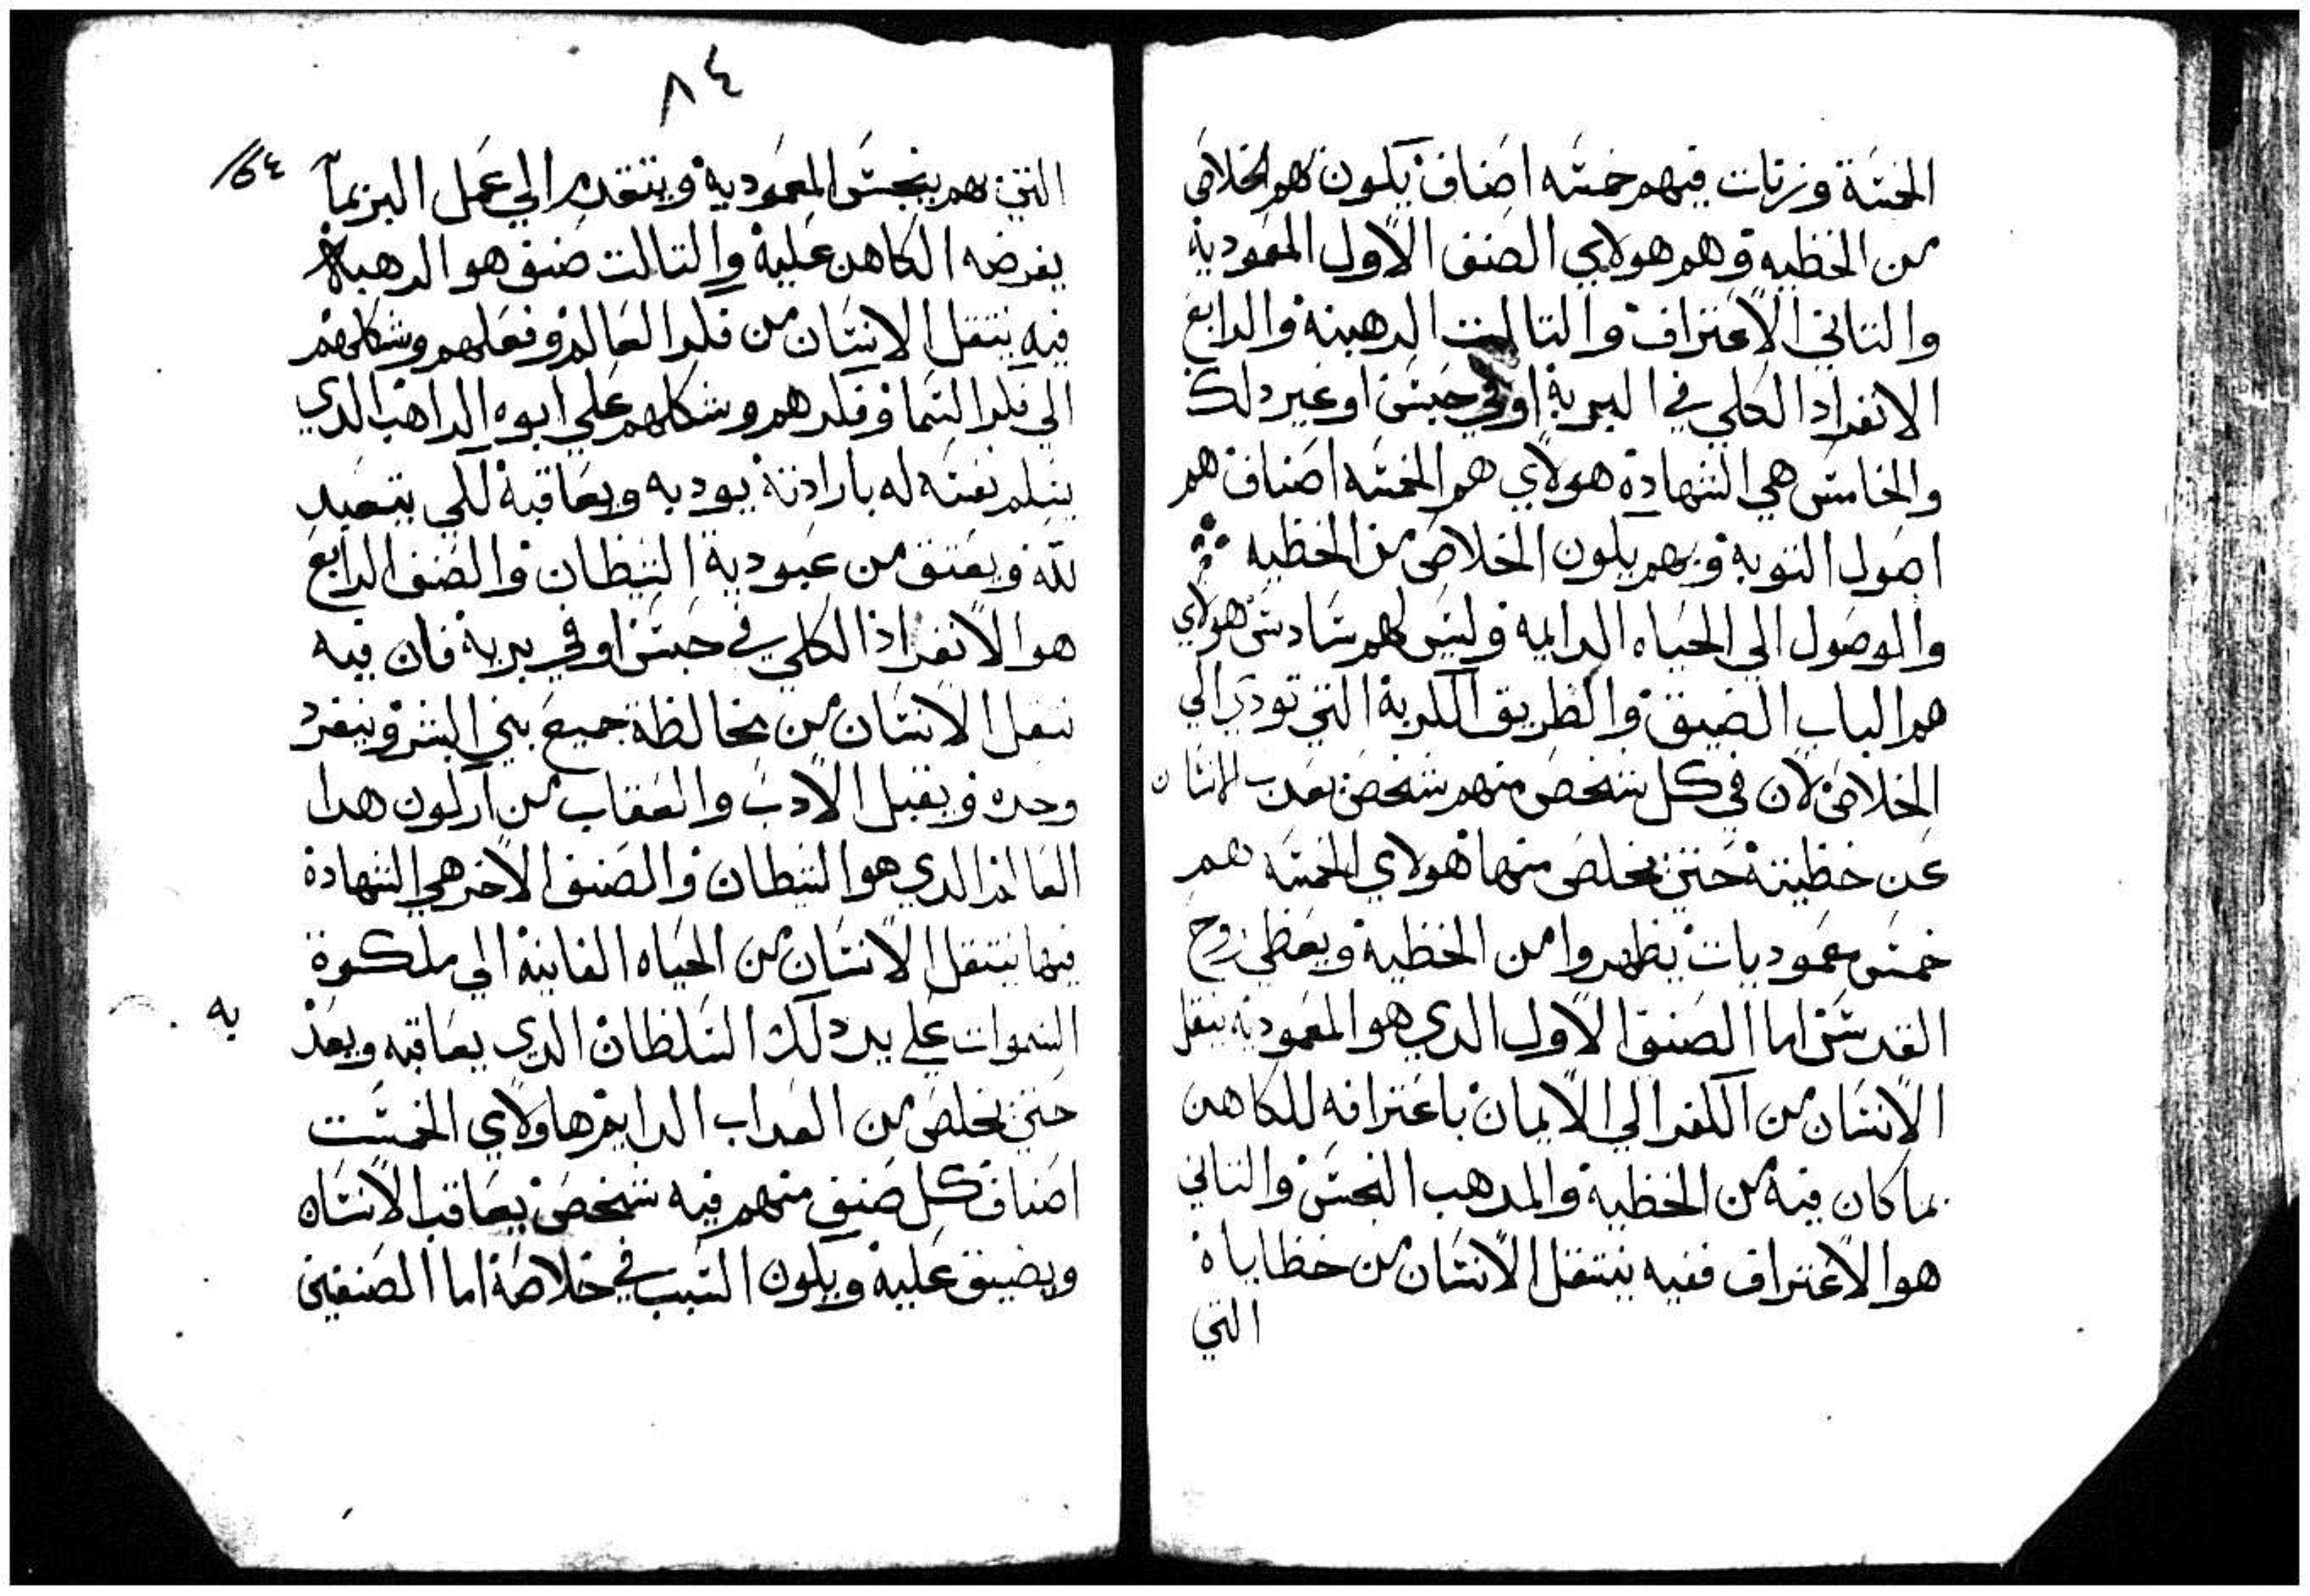 الخمسة وزنات فيهم خمسه اصناف يكون بهم الخلاص
من الخطيه وهم هولاي الصنف الاول المعمودية
والتاني الاعتراف والتالت الرهبنة والرابع
الانفراد الكلي في البرية او في حبس او غير دلك
والخامس هي الشهادة هولاي هم الخمسه اصناف هم
اصول التوبة وبهم يكون الخلاص من الخطيه
والوصول الي الحياه الدايمه وليس لهم سادس هولاي
هم الباب الضيق والطريق الكربة التي تودي الي
الخلاص لان في كل شخص منهم شخص يعدب الانسان
عن خطيته حتي يخلص منها هولاي الخمسه هم
خمس معموديات يطهروا من الخطية ويعطي روح
القدس اما الصنف الاول الدي هو المعموديه ينقل
الانسان من الكفر الي الايمان باعترافه للكاهن
بما كان فيه من الخطية والمدهب النجس والتاني
هو الاعتراف ففيه ينتقل الانسان من خطاياه
التي
٨٤
٦٤
التي بهم ينجس المعمودية ويتقدم الي عمل البر بما
يفرضه الكاهن علية والتالت صنف هو الرهبنة
فيه ينتقل الانسان من فكر العالم وفعلهم وشكلهم
الي فكر السما وفكرهم وشكلهم علي ابوه الراهب الدي
يسلم نفسه له بارادتة يودبه ويعاقبة لكي يتعبد
لله ويعتق من عبودية الشيطان والصنف الرابع
هو الانفراد الكلي في حبس او في برية فان فيه
ينقل الانسان من مخالطة جميع بني البشر وينفرد
وحده ويقبل الادب والعقاب من اركون هدا
العالم الدي هو الشيطان والصنف الاخر هي الشهادة
فيها ينتقل الانسان من الحياه الفانية الي ملكوة
السموات علي يد دلك السلطان الدي يعاقبه ويعد
به
حتي يخلص من العداب الدايم هاولاي الخمست
اصناف كل صنف منهم فيه شخص يعاقب الانسان
ويضيق علية ويكون السبب في خلاصة اما الصنفين